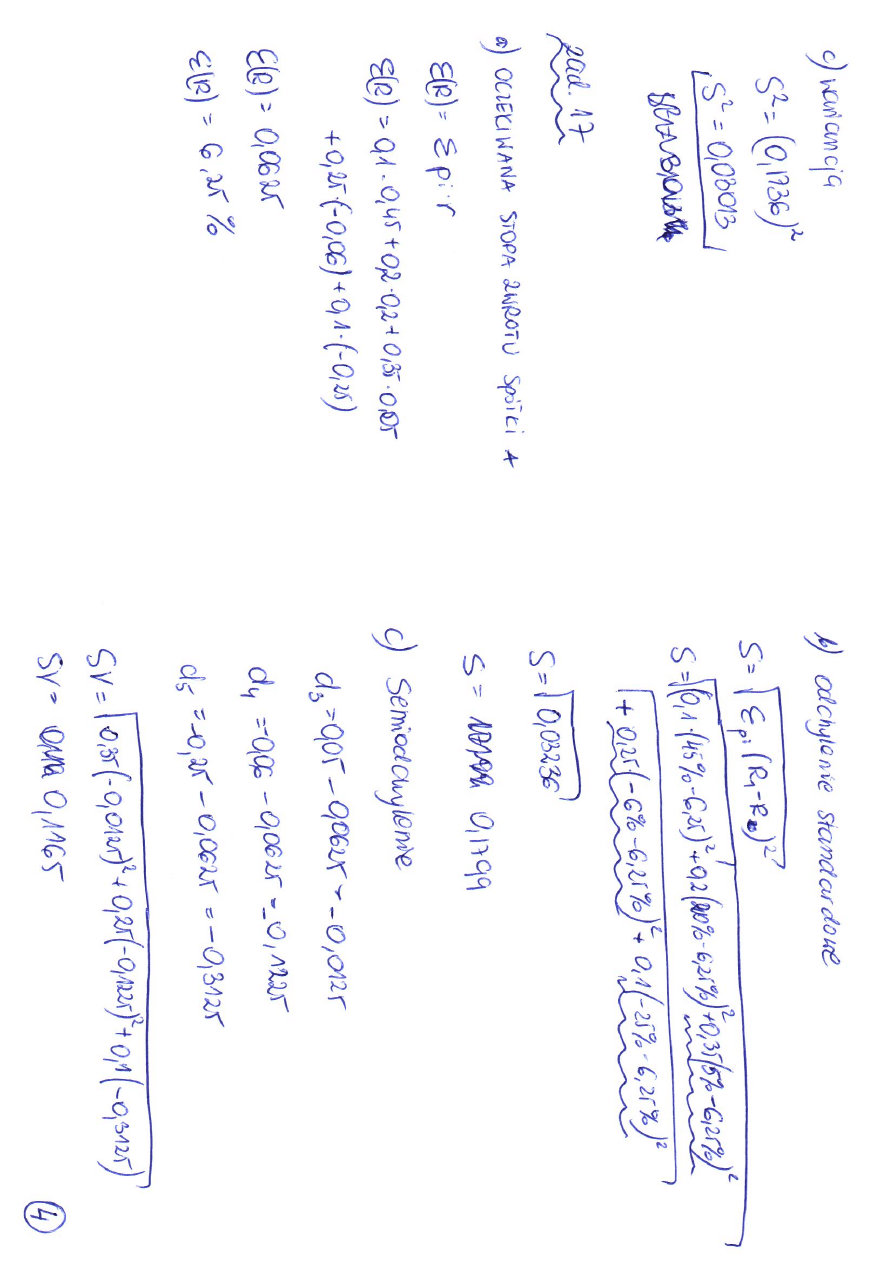 c) wariancja
S² = (0,1736)²
S² = 0,03013
zad. 17
a) OCZEKIWANA STOPA ZWROTU SPÓŁKI A
E(R) = Σ pi·r
E(R) = 0,1·0,45+0,2·0,2+0,35·0,05
+0,25·(-0,06)+0,1·(-0,25)
E(R) = 0,0625
E(R) = 6,25%
b) odchylenie standardowe
S=√Σpi(R1-R)²
S=√0,1·(45%-6,25)²+0,2(20%-6,25%)²+0,35(5%-6,25%)²
+ 0,25(-6%-6,25%)² + 0,1(-25%-6,25%)²
S=√0,03236
S = 0,1799
c) Semiodchylenie
d3=0,05-0,0625=-0,0125
d4=-0,06-0,0625=-0,1225
d5=-0,25-0,0625=-0,3125
SV=√0,35(-0,0125)²+0,25(-0,1225)²+0,1(-0,3125)
SV= 0,1165
4